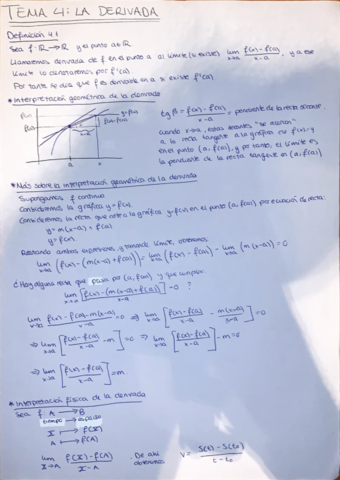 TEMA 4: LA DERIVADA
Definición 4.1
Sea f: R → R y el punto a∈R.
Llamaremos derivada de f en el punto a al límite (si existe) lim x→a f(x)-f(a) / x-a, y a ese
límite lo denotaremos por f'(a).
Por tanto, se dice que f es derivable en a si existe f'(a)
* Interpretación geométrica de la derivada
y=f(x)
f(x)
f(a)
f(x)-f(a)
x-a
a
x
tg β = f(x)-f(a) / x-a = pendiente de la recta
cuando x→a, estas rectas "se
a la recta tangente a la gráfica de f(x)=y
en el punto (a, f(a)), y por tanto, el límite es
la pendiente de la recta tangente en (a, f(a))
* Más sobre la interpretación geométrica de la derivada
Supongamos f continua
Consideramos la gráfica y=f(x).
Consideramos la recta que corta a la gráfica y=f(x), en el punto (a, f(a)), por ecuación de recta:
y = m(x-a) + f(a)
y = f(x).
Restando ambas expresiones, y tomando límite, obtenemos:
lim x→a (f(x) - (m(x-a)+f(a))) = lim x→a (f(x) - f(a)) - lim x→a (m(x-a)) = 0
¿Hay alguna recta que pasa por (a, f(a)) y que cumpla:
lim x→a [f(x) - (m(x-a)+f(a)) / x-a] = 0 ?
lim x→a f(x)-f(a)-m(x-a) / x-a = 0 ⇒ lim x→a [f(x)-f(a) / x-a - m(x-a) / x-a] = 0
⇒ lim x→a [f(x)-f(a) / x-a - m] = 0 ⇒ lim x→a [f(x)-f(a) / x-a] - m = 0
⇒ lim x→a [f(x)-f(a) / x-a] = m
* Interpretación física de la derivada
Sea f: A → B
tiempo → espacio
X → f(X)
A → f(A)
lim X→A f(X)-f(A) / X-A . De ahí obtenemos V = S(t) - S(t₀) / t - t₀